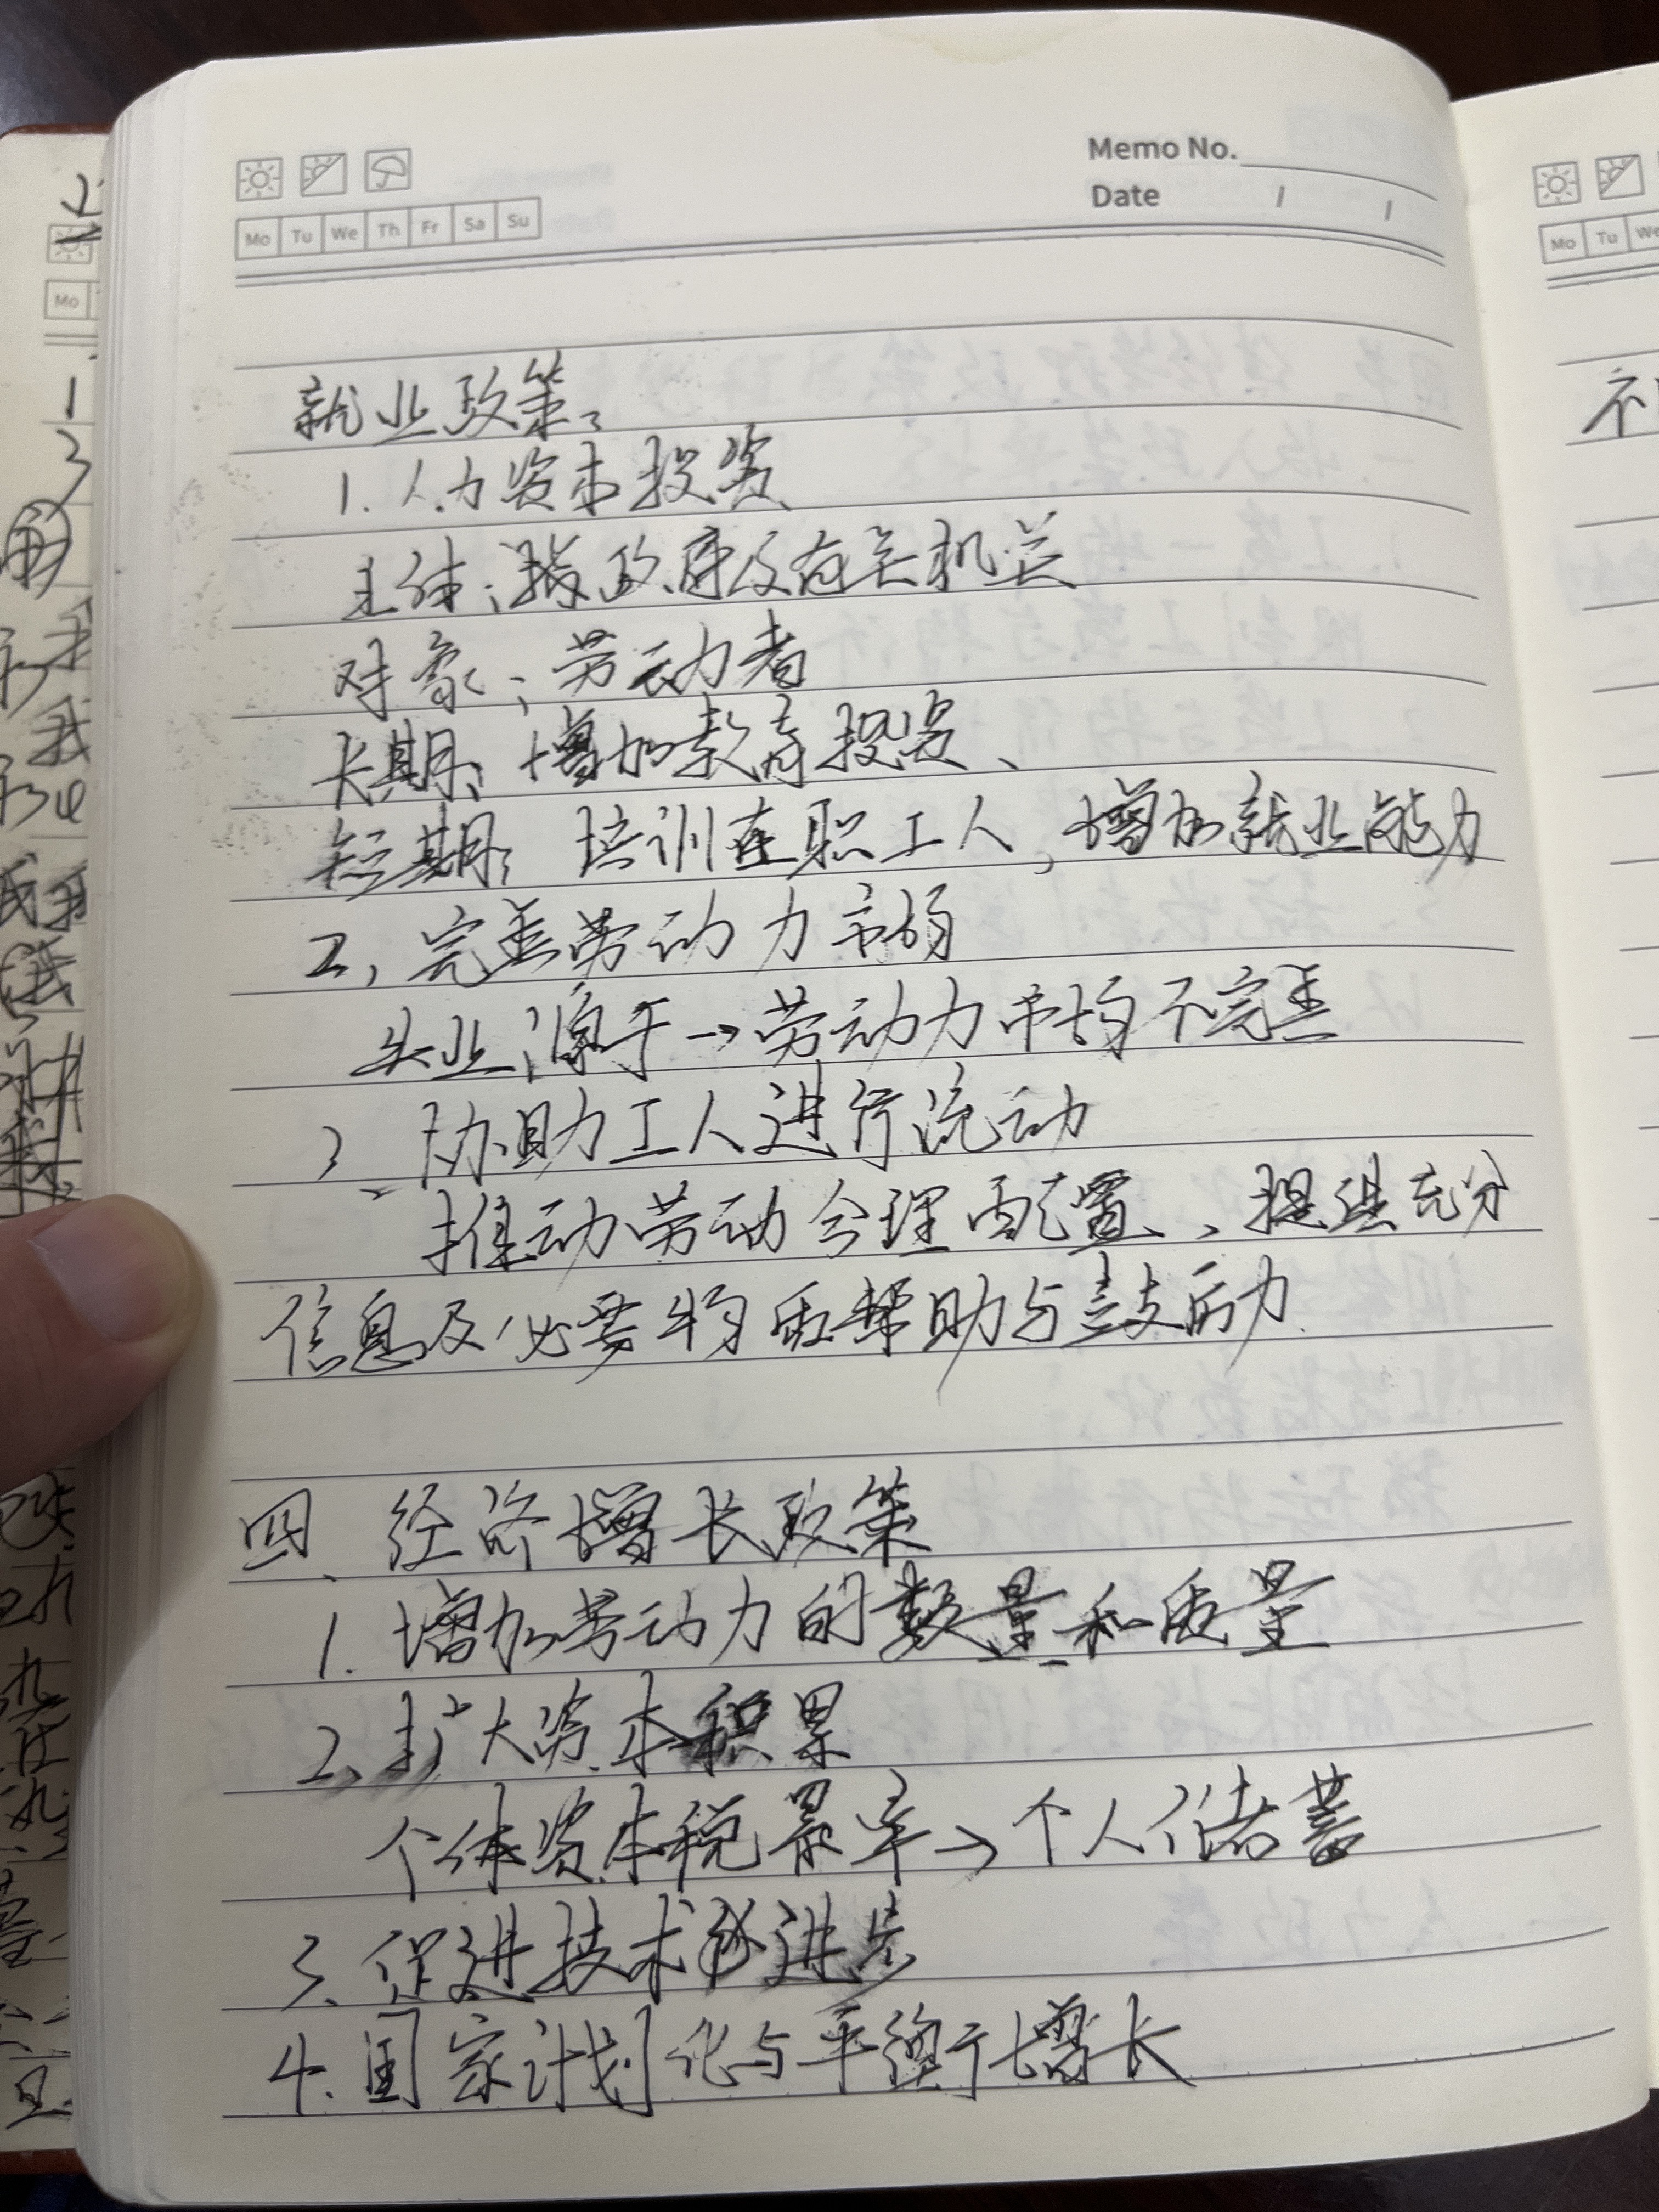 Memo No.
Date / /
Mo Tu We Th Fr Sa Su
就业政策、
1. 人力资本投资
主体：指政府及有关机关
对象：劳动者
长期：增加教育投资、
短期：培训在职工人，增加就业能力
2、完善劳动力市场
失业源于→劳动力市场不完善
3、协助工人进行流动
推动劳动合理配置、提供充分
信息及必要物质帮助与鼓励
四、经济增长政策
1. 增加劳动力的数量和质量
2、扩大资本积累
个体资本税率→个人储蓄
3、促进技术进步
4. 国家计划化与平衡增长
Mo
Mo Tu We